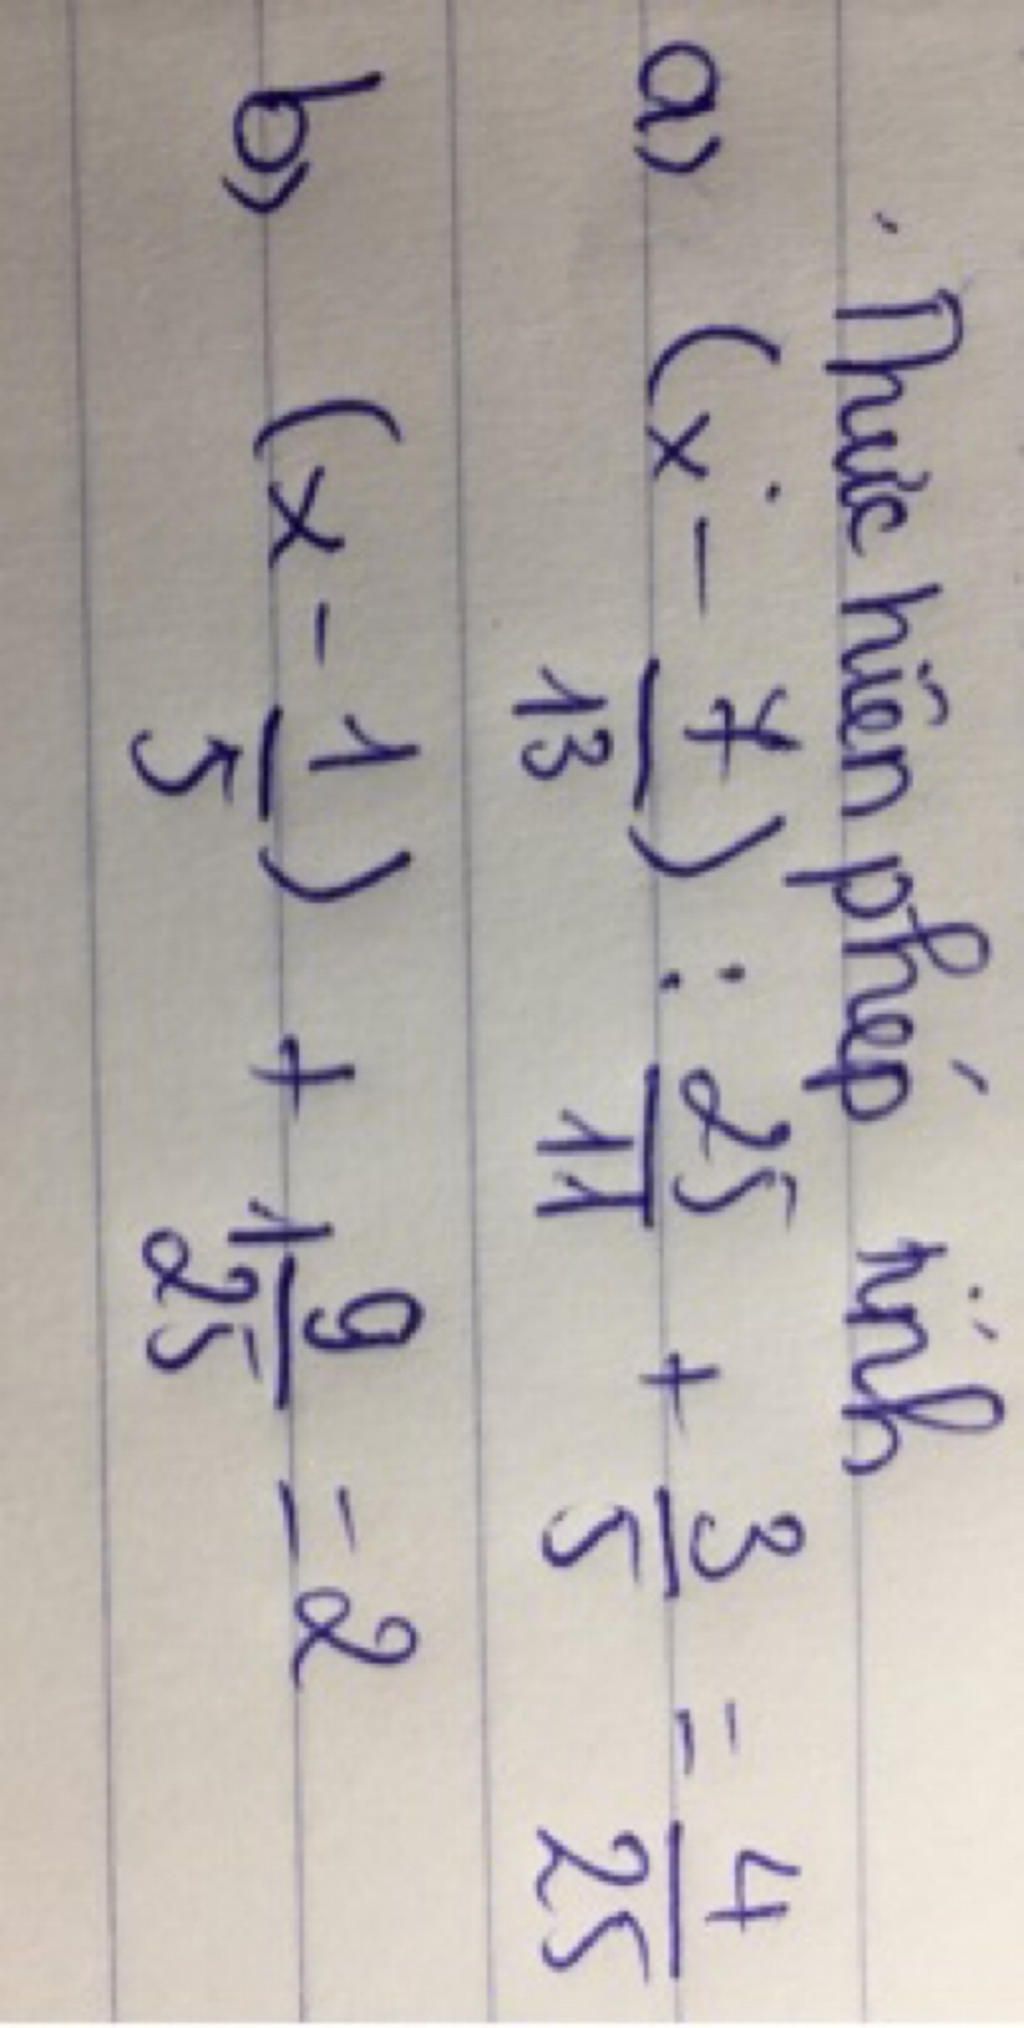 Thực hiện phép tính
a) (x - 7/13) : 25/11 + 3/5 = 4/25
b) (x - 1/5) + 1 9/25 = 2